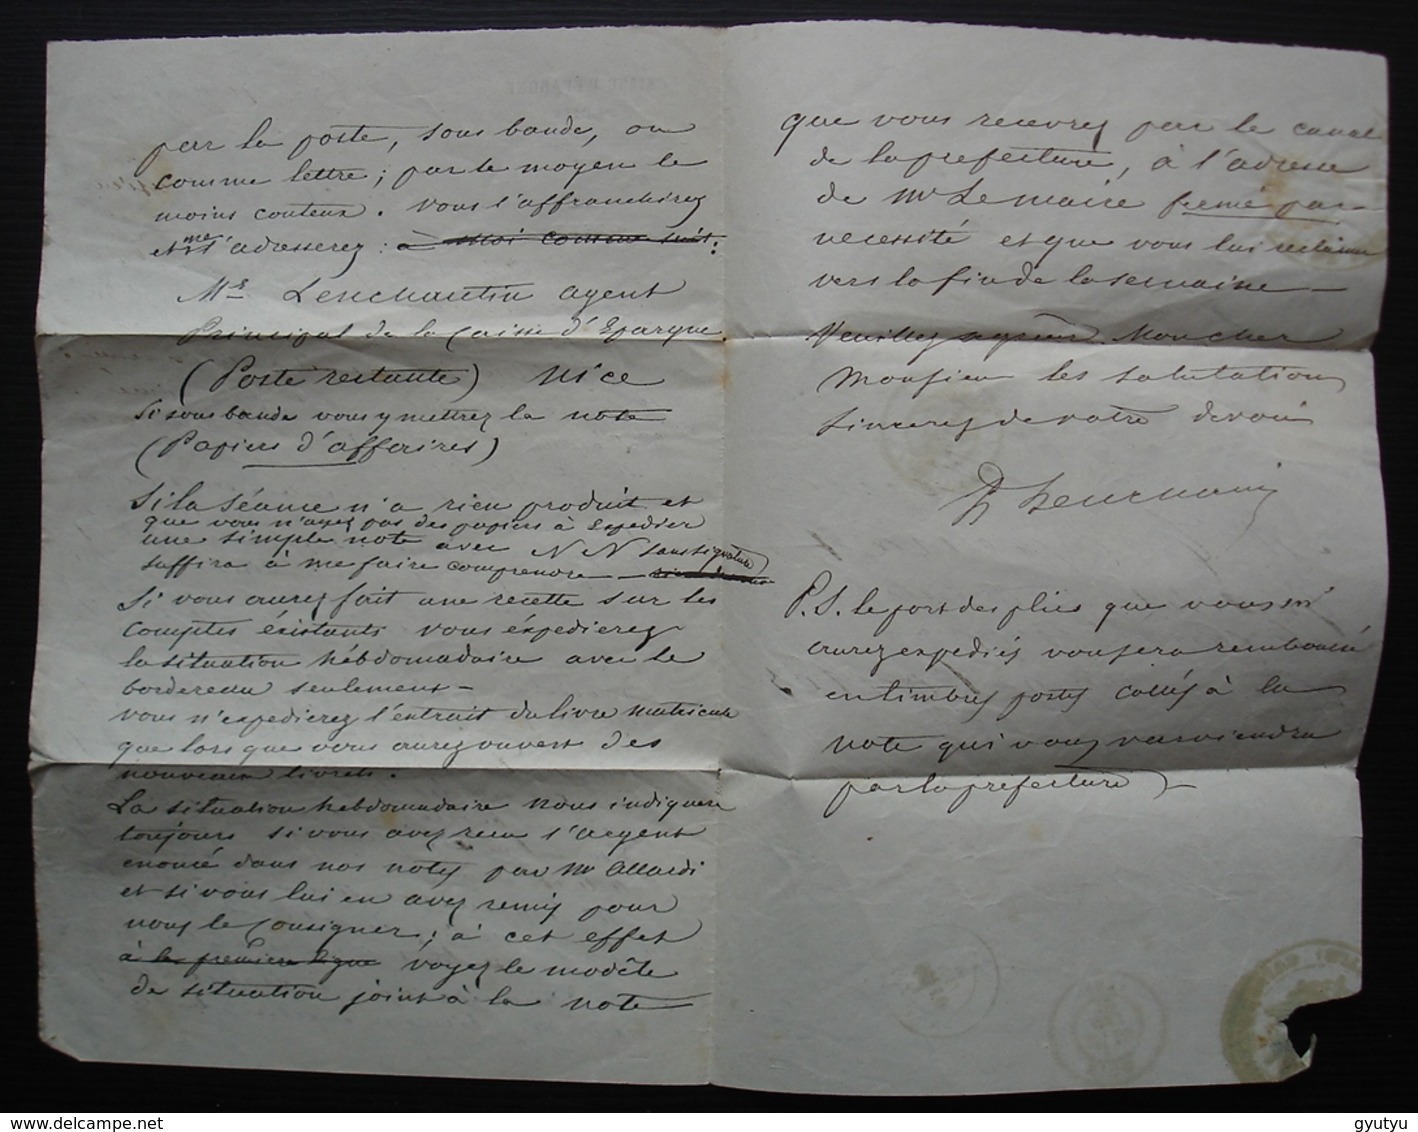 par la poste, sous bande, ou
comme lettre; par le moyen le
moins couteux. Vous l'affranchirez
et me l'adresserez : à moi comme suit:
Mr Lenchantin agent
Principal de la Caisse d'Epargne
(Poste restante) Nice
Si sous bande vous y mettrez la note
(Papiers d'affaires)
Si la séance n'a rien produit et
que vous n'ayez pas des papiers à expédier
une simple note avec N N sans signature
suffira à me faire comprendre
Si vous aurez fait une recette sur les
comptes éxistants vous éxpédierez
la situation hébdomadaire avec le
bordereau seulement —
vous n'expedierez l'extrait du livre matricule
que lors que vous aurez ouvert des
nouveaux livrets.
La situation hebdomadaire nous indiquera
toujours si vous avez reçu l'argent
enoncé dans nos notes par Mr Allardi
et si vous lui en avez remis pour
nous le consigner; à cet effet
à la première ligne voyez le modèle
de situation joint à la note
que vous recevrez par le canal
de la prefecture, à l'adresse
de Mr Lemaire fermé par
necessité et que vous lui reclamer
vers la fin de la semaine —
Veuillez agréer Mon cher
Monsieur les salutations
sinceres de votre devoué
Lenchantin
P.S. le port des plis que vous m'
aurez expediés vous sera remboursé
en timbres postes collés à la
note qui vous parviendra
par la prefecture
delcampe.net
gyutyu